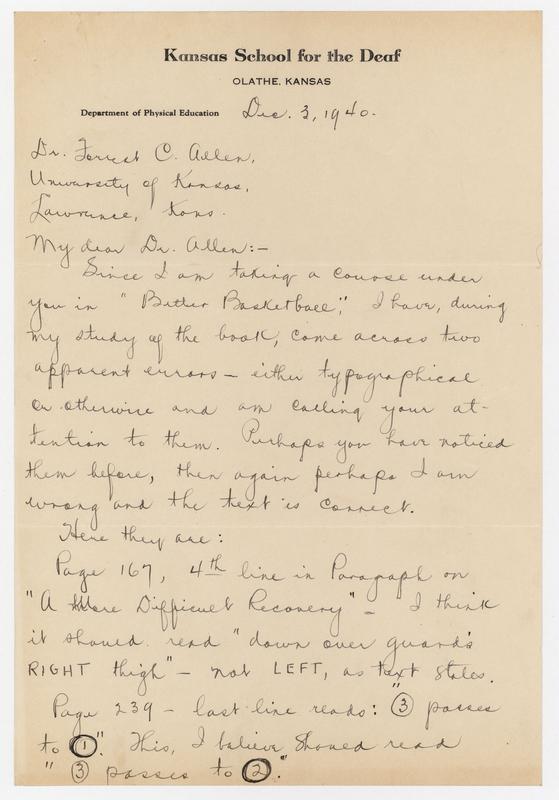 Kansas School for the Deaf
OLATHE, KANSAS
Department of Physical Education Dec. 3, 1940.
Dr. Forrest C. Allen,
University of Kansas,
Lawrence, Kans.
My dear Dr. Allen:—
Since I am taking a course under
you in "Better Basketball," I have, during
my study of the book, come across two
apparent errors — either typographical
or otherwise and am calling your at-
tention to them. Perhaps you have noticed
them before, then again perhaps I am
wrong and the text is correct.
Here they are:
Page 167, 4th line in Paragraph on
"A More Difficult Recovery" — I think
it should read "down over guard's
RIGHT thigh" — not LEFT, as text states.
Page 239 — last line reads: "③ passes
to ①". This, I believe should read
"③ passes to ②."